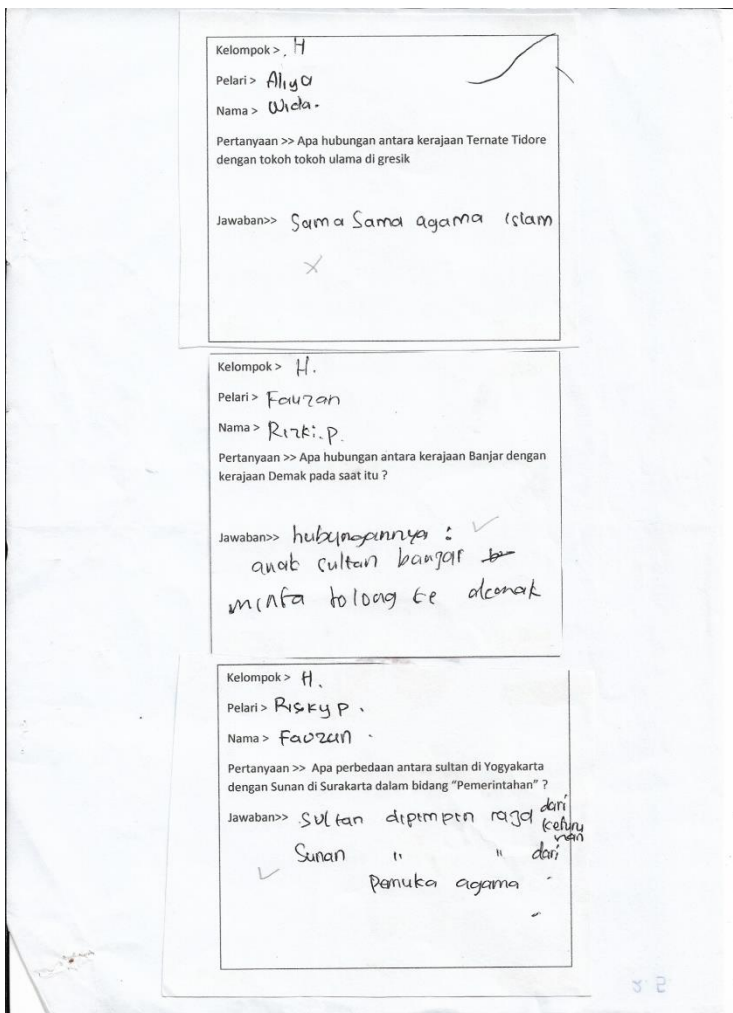 Kelompok > . H
Pelari > Aliya
Nama > Wida.
Pertanyaan >> Apa hubungan antara kerajaan Ternate Tidore
dengan tokoh tokoh ulama di gresik
Jawaban>> Sama Sama agama islam
Kelompok > H.
Pelari > Fauzan
Nama > Rizki.P.
Pertanyaan >> Apa hubungan antara kerajaan Banjar dengan
kerajaan Demak pada saat itu ?
Jawaban>> hubungannya :
anak sultan banjar
minta tolong ke demak
Kelompok > H.
Pelari > Risky P .
Nama > Fauzan .
Pertanyaan >> Apa perbedaan antara sultan di Yogyakarta
dengan Sunan di Surakarta dalam bidang "Pemerintahan" ?
Jawaban>> Sultan dipimpin raja dari keturunan
Sunan " " dari
Pemuka agama
2 5